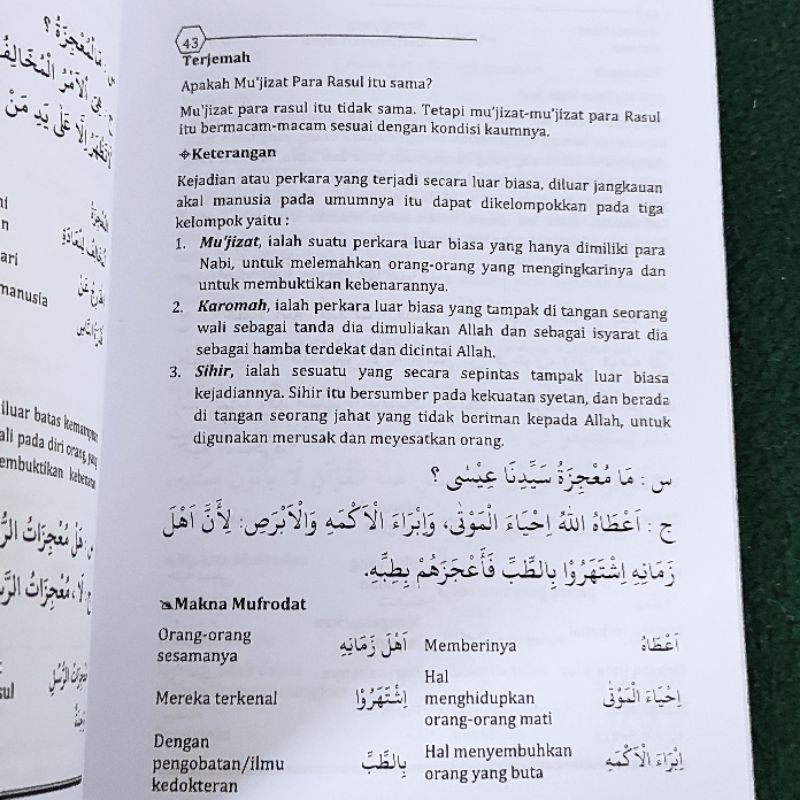 43
Terjemah
Apakah Mu'jizat Para Rasul itu sama?
Mu'jizat para rasul itu tidak sama. Tetapi mu'jizat-mu'jizat para Rasul
itu bermacam-macam sesuai dengan kondisi kaumnya.
Keterangan
Kejadian atau perkara yang terjadi secara luar biasa, diluar jangkauan
akal manusia pada umumnya itu dapat dikelompokkan pada tiga
kelompok yaitu :
1. Mu'jizat, ialah suatu perkara luar biasa yang hanya dimiliki para
Nabi, untuk melemahkan orang-orang yang mengingkarinya dan
untuk membuktikan kebenarannya.
2. Karomah, ialah perkara luar biasa yang tampak di tangan seorang
wali sebagai tanda dia dimuliakan Allah dan sebagai isyarat dia
sebagai hamba terdekat dan dicintai Allah.
3. Sihir, ialah sesuatu yang secara sepintas tampak luar biasa
kejadiannya. Sihir itu bersumber pada kekuatan syetan, dan berada
di tangan seorang jahat yang tidak beriman kepada Allah, untuk
digunakan merusak dan meyesatkan orang.
س : مَا مُعْجِزَةُ سَيِّدِنَا عِيْسٰى ؟
ج : اَعْطَاهُ اللهُ اِحْيَاءَ الْمَوْتٰى، وَاِبْرَاءَ الْاَكْمَهِ وَالْاَبْرَصِ: لِأَنَّ اَهْلَ
زَمَانِهِ اِشْتَهَرُوْا بِالطَّبِّ فَأَعْجَزَهُمْ بِطِبِّهِ.
Makna Mufrodat
Orang-orang
sesamanya
اَهْلَ زَمَانِهِ
Memberinya
اَعْطَاهُ
Mereka terkenal
اِشْتَهَرُوْا
Hal
menghidupkan
orang-orang mati
اِحْيَاءَ الْمَوْتٰى
Dengan
pengobatan/ilmu
kedokteran
بِالطَّبِّ
Hal menyembuhkan
orang yang buta
اِبْرَاءَ الْاَكْمَهِ
س : مَالْمُعْجِزَةُ ؟
ج : هِيَ اَلْاَمْرُ الْمُخَالِفُ
عَلٰى يَدِ مَنْ
ari
manusia
iluar batas kemampuan
ali pada diri orang yang
embuktikan kebenaran
س : هَلْ مُعْجِزَاتُ
ج : لَا، مُعْجِزَاتُ
مُعْجِزَاتُ الرُّسُلِ
sul